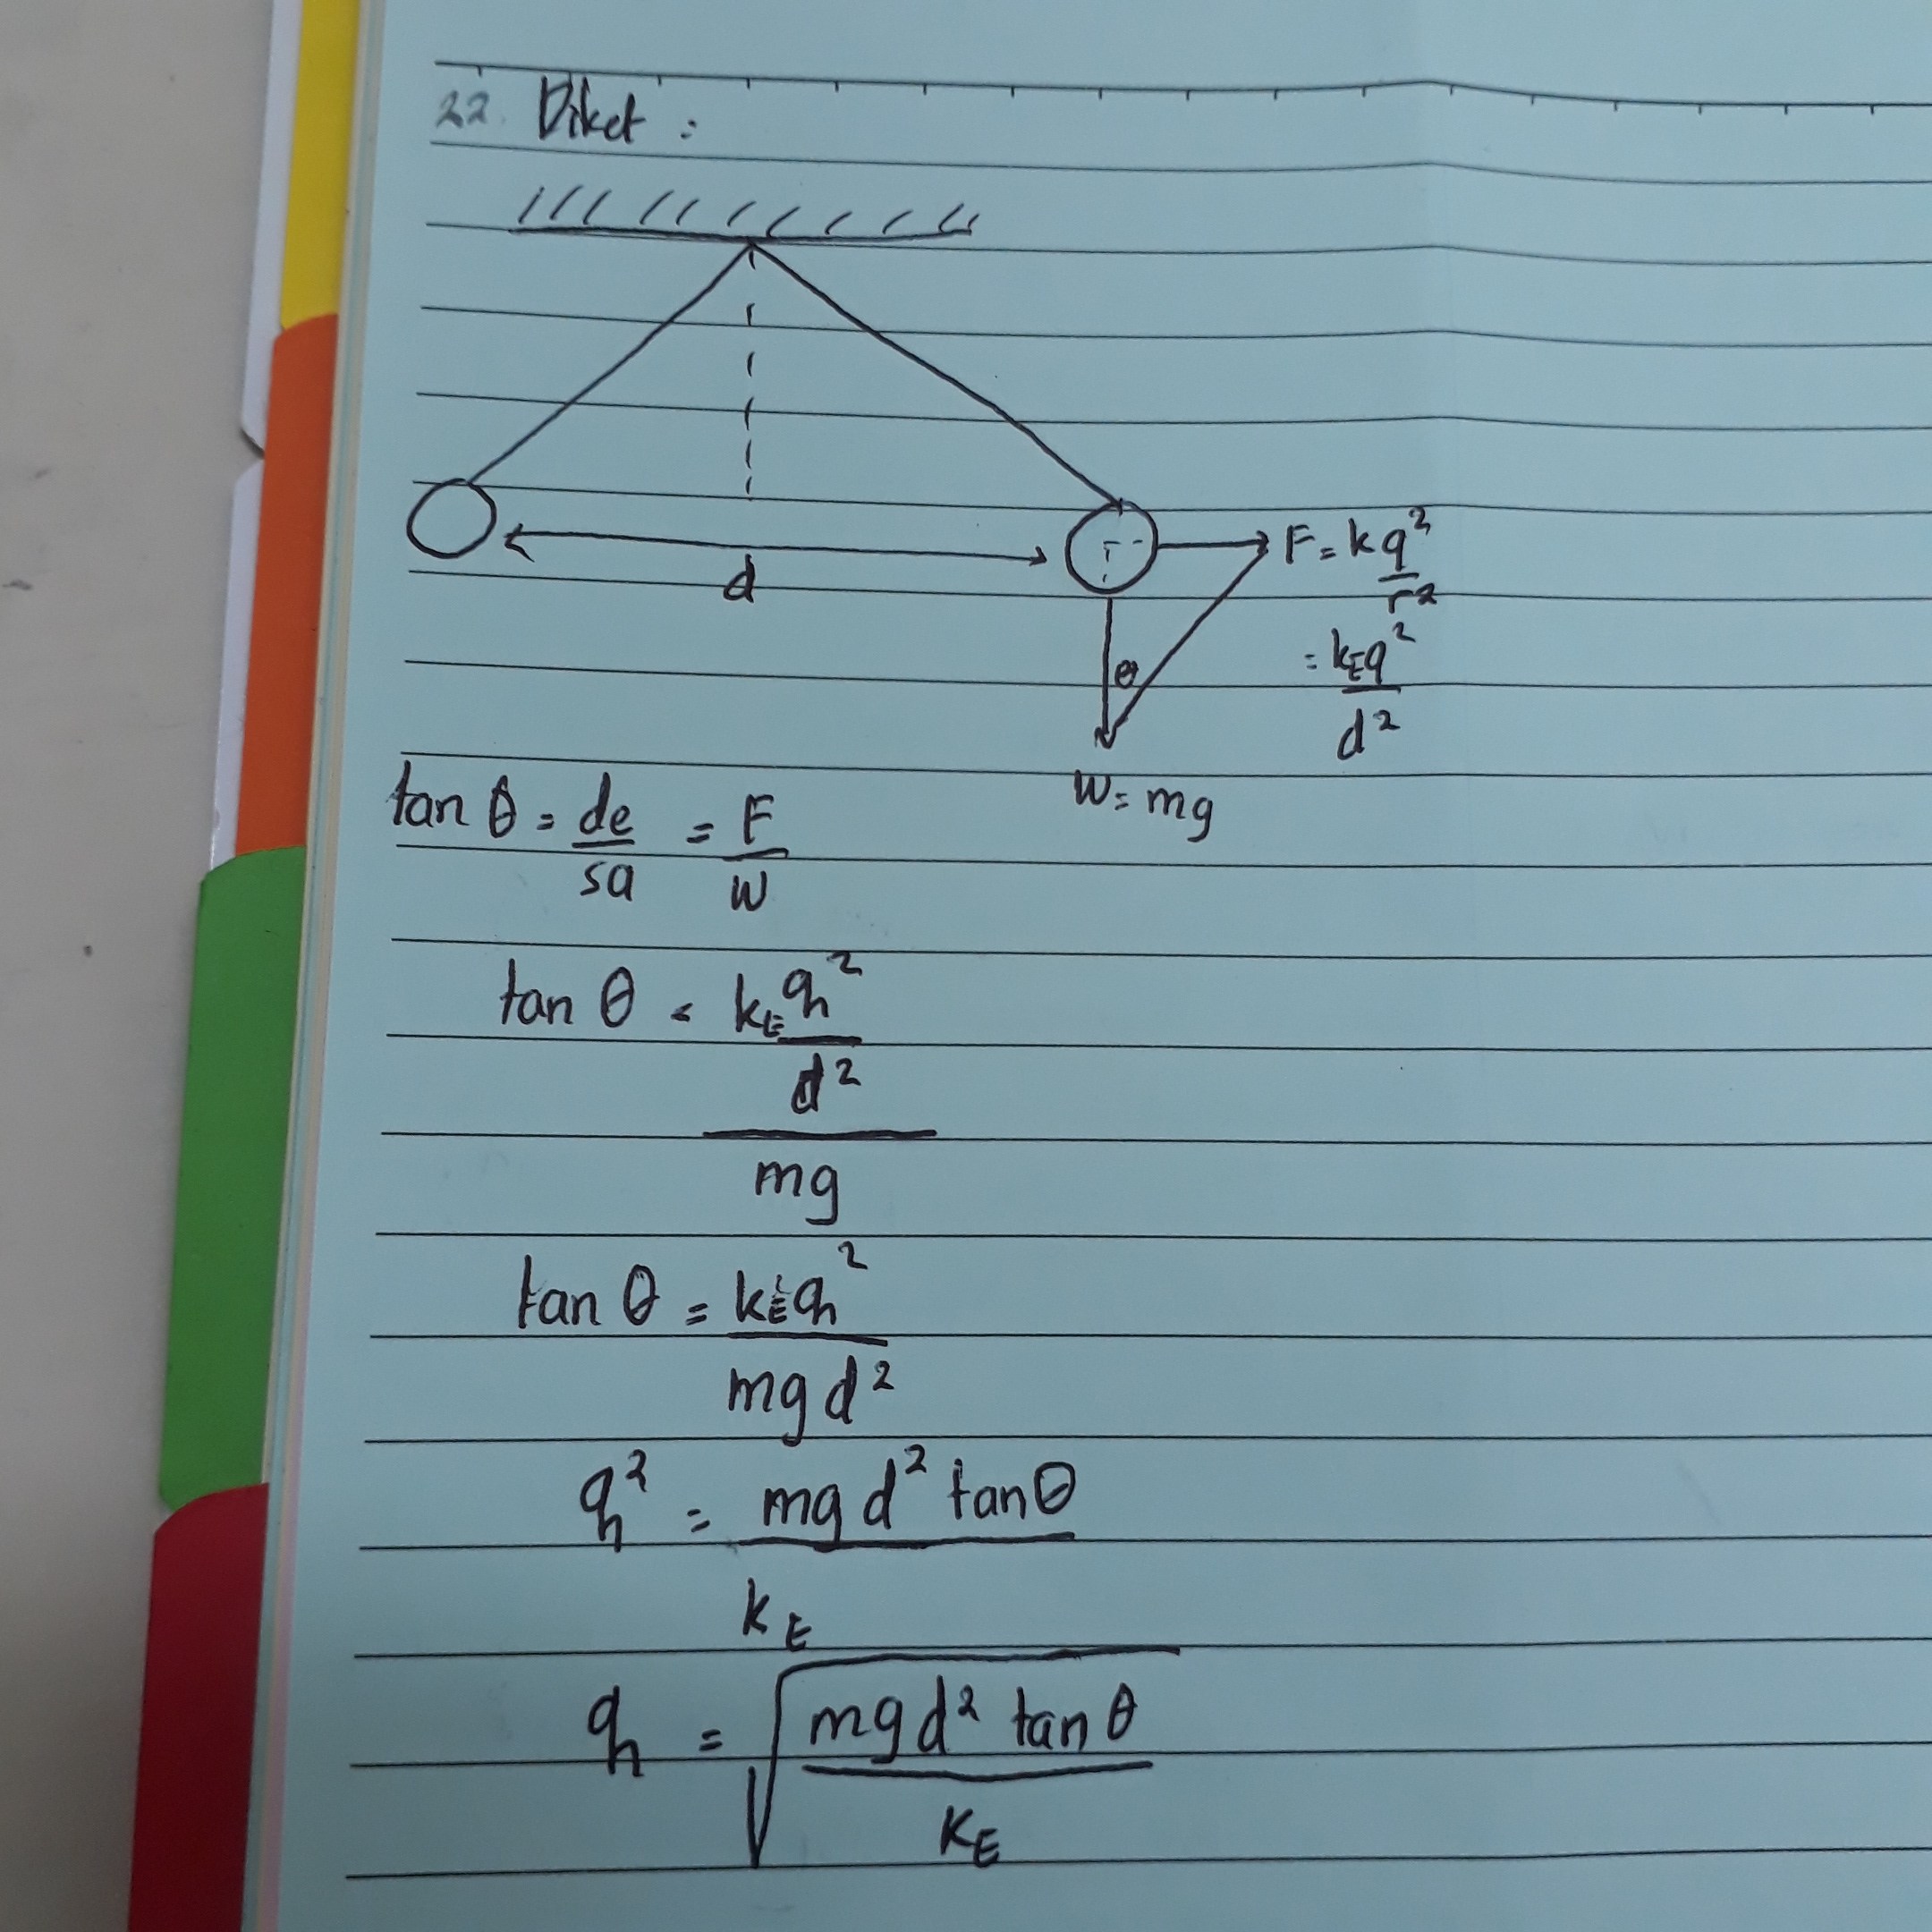 22. Diket :
F = k q²
r²
= kE q²
d²
d
θ
W = mg
tan θ = de = F
sa W
tan θ = kE q²
d²
mg
tan θ = kE q²
mg d²
q² = mg d² tan θ
kE
q = √ mg d² tan θ
kE